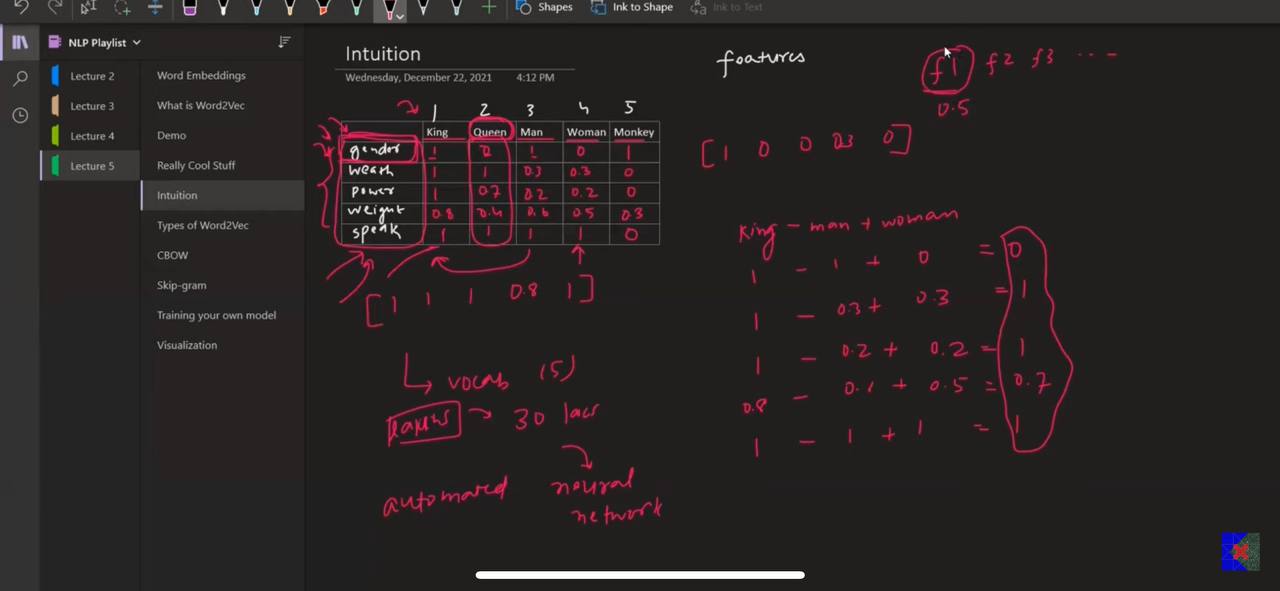 Shapes Ink to Shape Ink to Text
NLP Playlist
Lecture 2
Lecture 3
Lecture 4
Lecture 5
Word Embeddings
What is Word2Vec
Demo
Really Cool Stuff
Intuition
Types of Word2Vec
CBOW
Skip-gram
Training your own model
Visualization
Intuition
Wednesday, December 22, 2021 4:12 PM
1 2 3 4 5
King Queen Man Woman Monkey
gender 1 0 1 0 1
wealth 1 1 0.3 0.3 0
Power 1 0.7 0.2 0.2 0
weight 0.8 0.4 0.6 0.5 0.3
speak 1 1 1 1 0
[1 1 1 0.8 1]
vocab (5)
30 lacs
automated neural
network
features
f1 f2 f3 ----
0.5
[1 0 0 0.3 0]
King - man + woman
1 - 1 + 0 = 0
1 - 0.3 + 0.3 = 1
1 - 0.2 + 0.2 = 1
0.8 - + 0.5 = 0.7
1 - 1 + 1 = 1